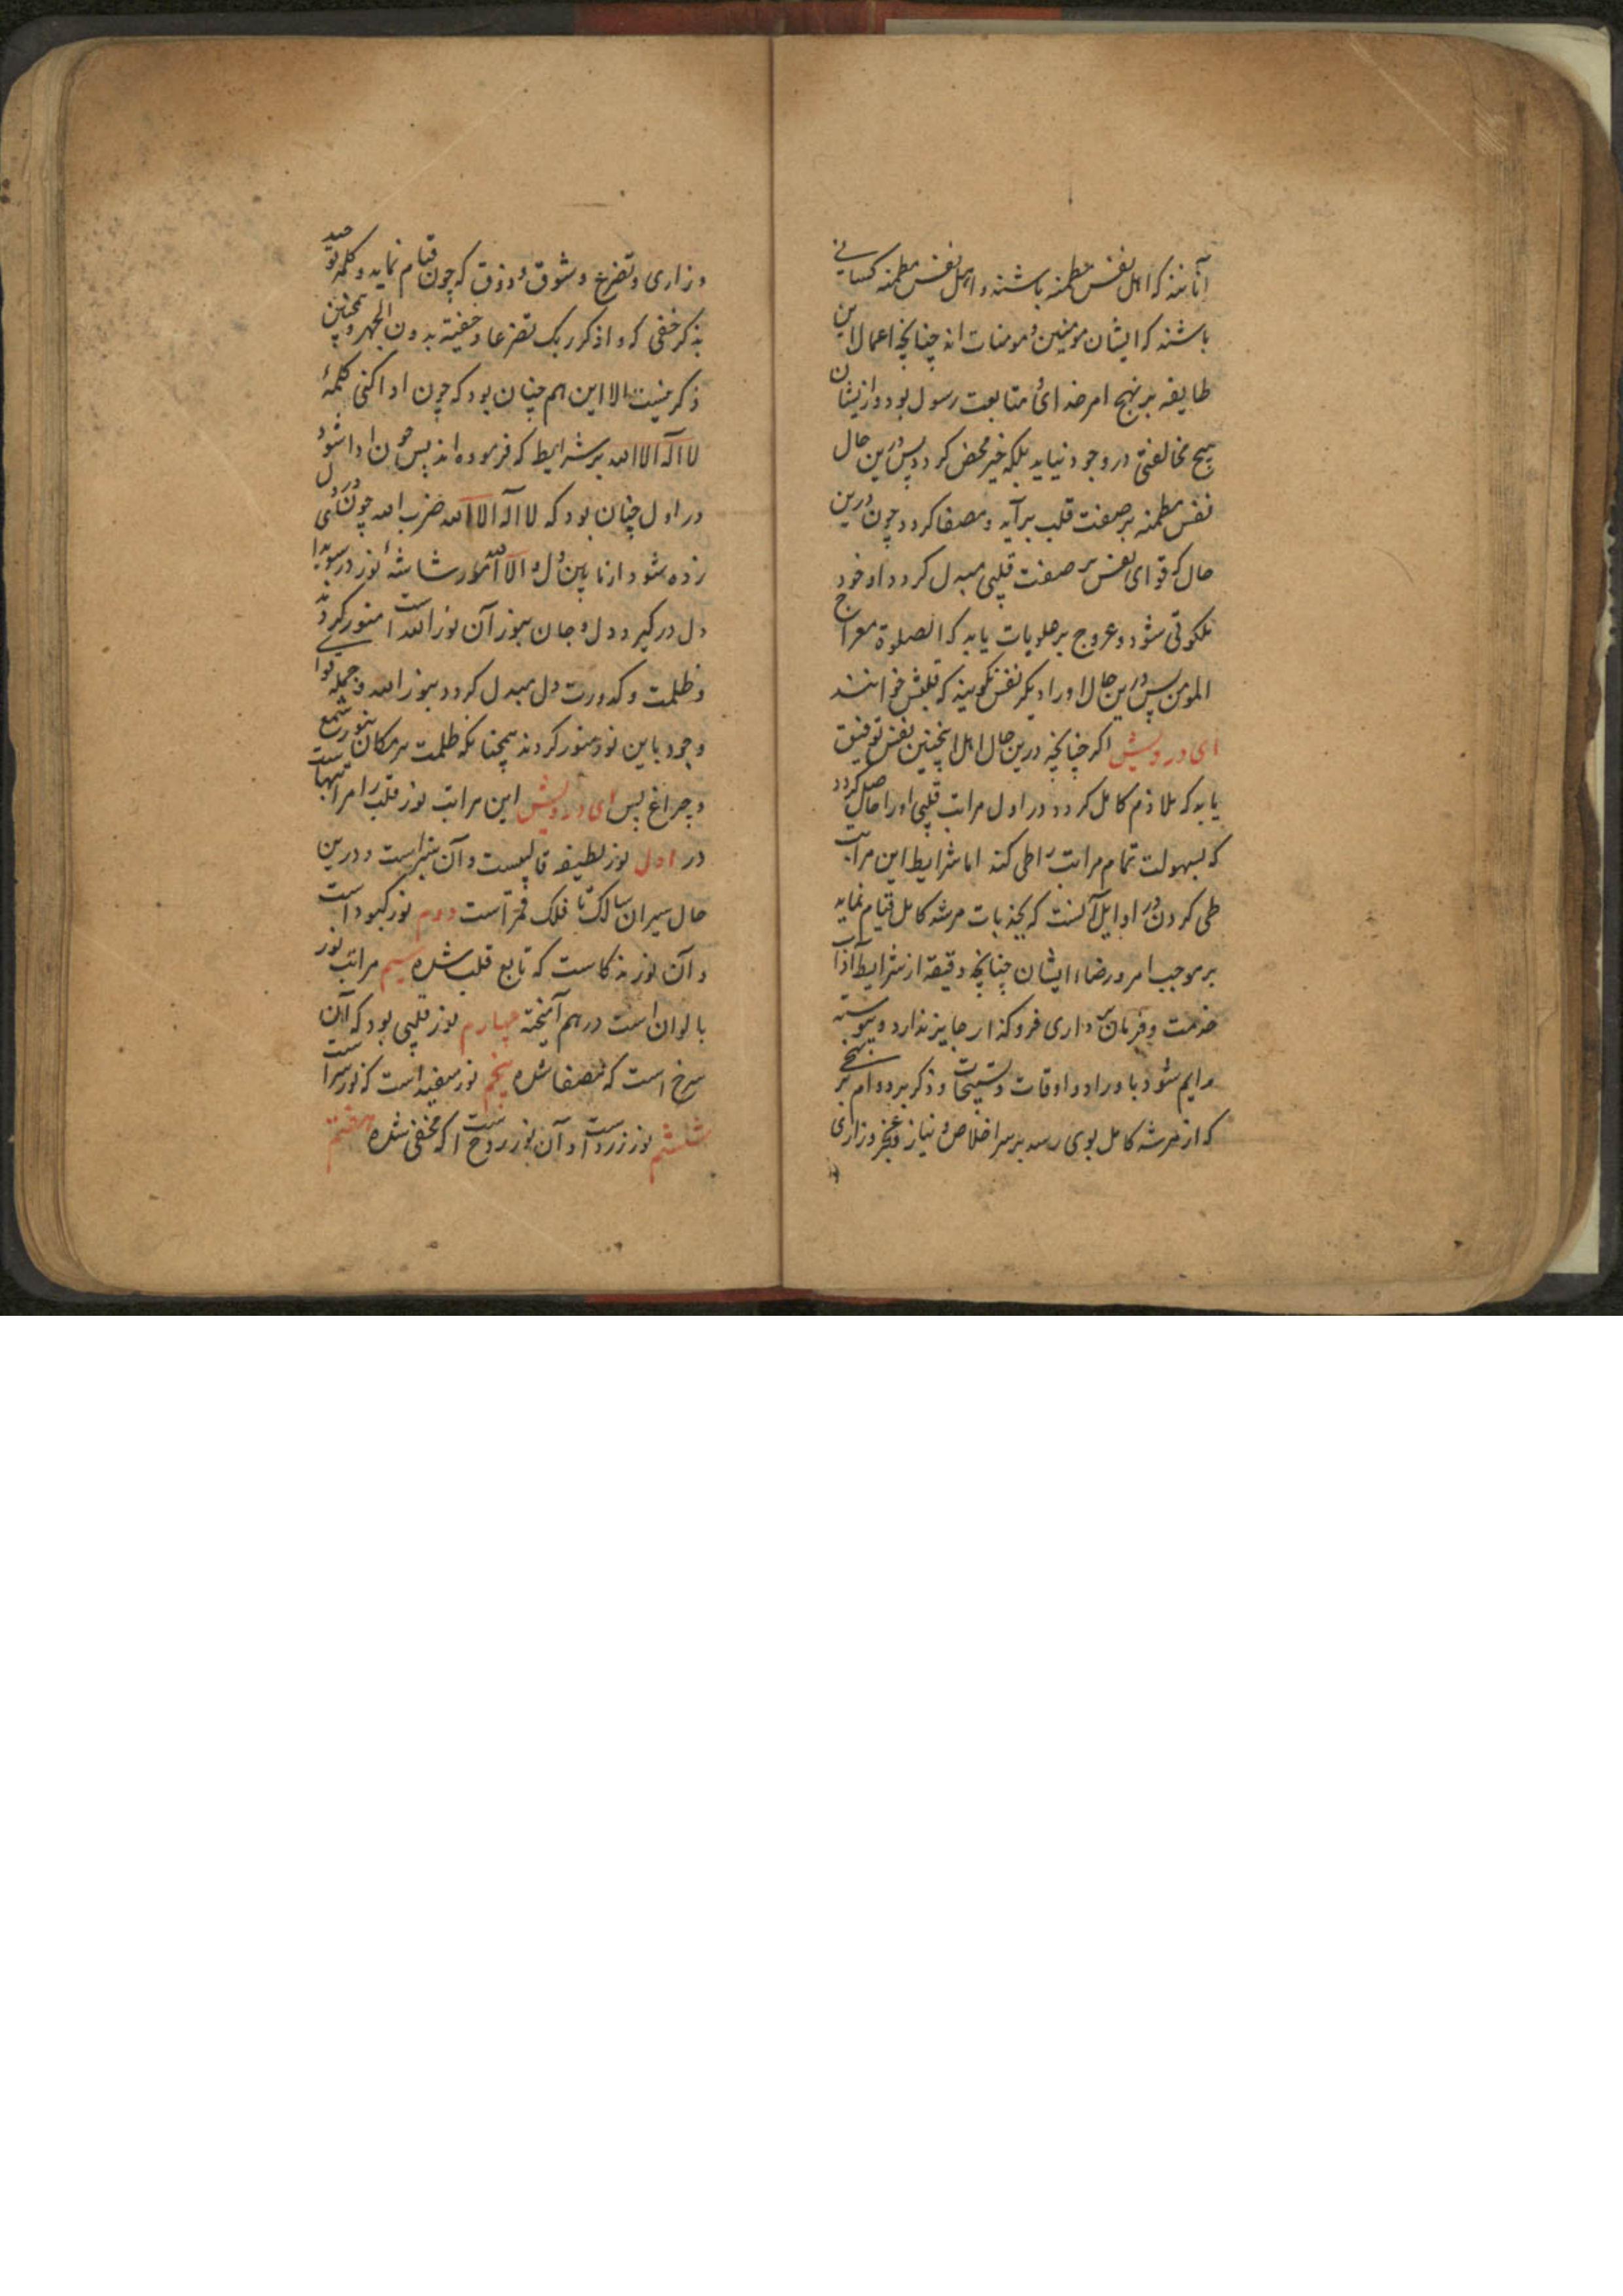 آنانند که اهل نفس مطمئنه باشند و اهل نفس مطمئنه کسانی
باشند که ایشان مومنین و مومنات اند چنانچه اعمال این
طایفه بر نهج امر خدای و متابعت رسول بود و ازیشان
هیچ مخالفتی در وجود نیاید بلکه خیر محض کردد پس درین حال
نفس مطمئنه بر صفت قلب برآید و مصفا کردد چون درین
حال که قوای نفس بر صفت قلبی مبدل کردد او خود
ملکوتی شود و عروج بر علویات یابد که الصلوة معراج
المومن پس درین حال او را دیکر نفس نکویند که قلبش خوانند
ای درویش اکر چنانچه درین حال اهل اینچنین نفس توفیق
یابد که ملازم کامل کردد در اول مراتب قلبی او را حاصل کردد
که بسهولت تمام مراتب را طی کند اما شرایط این مراتب
طی کردن در اوایل آنست که بجذبات مرشد کامل قیام نماید
بر موجب امر و رضاء ایشان چنانچه دقیقه از شرایط آداب
خدمت و فرمان بر داری فرو کذار جایز ندارد و پیوسته
دایم شود باوراد و اوقات و تسبیحات و ذکر بر دوام بر نهجی
که از مرشد کامل بوی رسد بر سر اخلاص و نیاز و عجز و زاری
و زاری و تضرع و شوق و ذوق که چون قیام نماید و کلمه توحید
بذکر خفی که واذکر ربک تضرعا و خفیة بدون الجهر و همچنین
ذکر نیست الا این هم چنان بود که چون ادا کنی کلمهٔ
لا اله الا الله بر شرایط که فرموده اند پس چون ادا شود
در اول چنان بود که لا اله الا الله ضرب الله چون بر دل
زده شود از ما بین دل و الا الله نور شاشهٔ نور در سویدا
دل در کیرد و دل و جان بنور آن نور الله است منور کردند
و ظلمت و کدورت دل مبدل کردد بنور الله و جمله قوا
وجود باین نور منور کردند همچنانکه ظلمت هر مکان بنور شمع
و چراغ پس ای درویش این مراتب نور قلب را مراتبهاست
در اول نور لطیفه قالبیست و آن سبز است و درین
حال سیران سالک تا فلک قمر است دوم نور کبود است
و آن نور ذکاست که تابع قلب شده سیم مراتب نور
بالوان است درهم آمیخته چهارم نور قلبی بود که آن
سرخ است که مصفا شده پنجم نور سفید است که نور سر است
ششم نور زرد است و آن نور روح است که مخفی شده هفتم